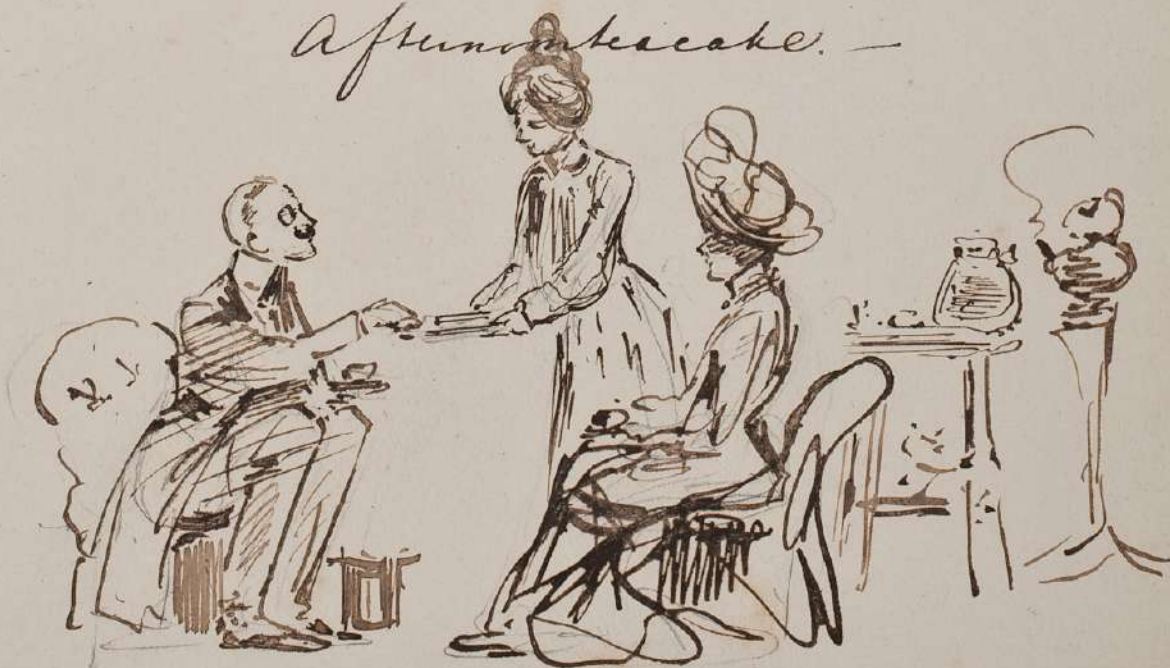 Afternoonteacake. —